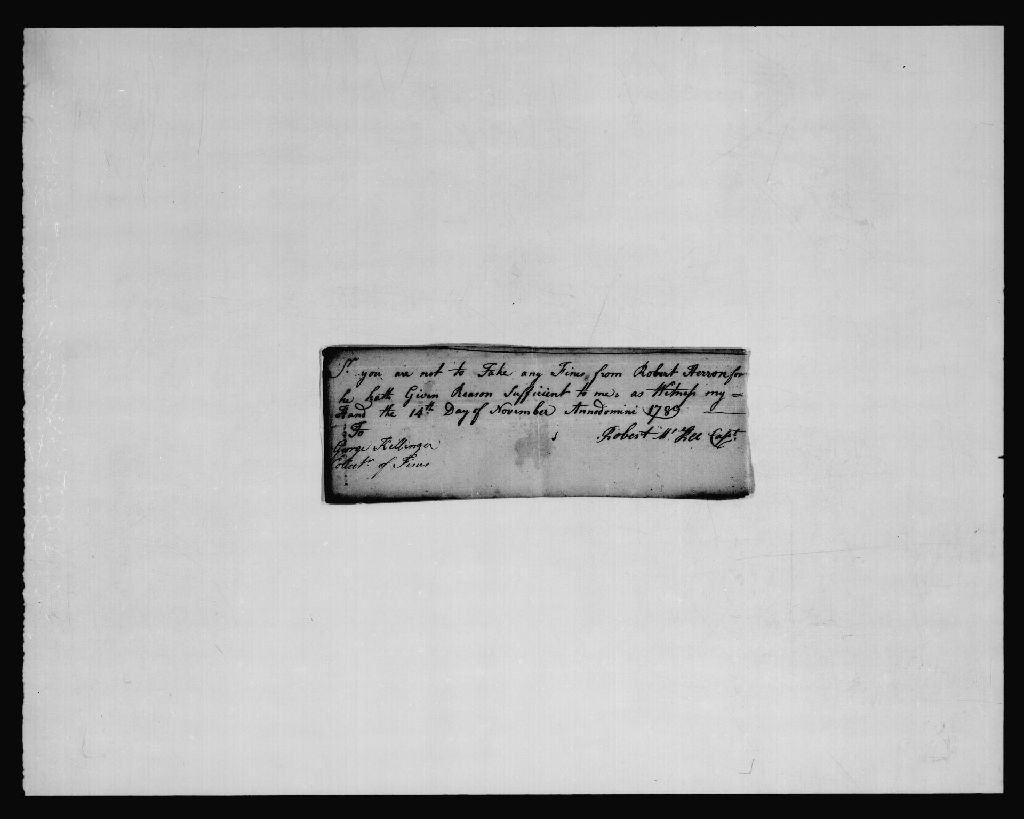 Sr. you are not to Take any Fines from Robert Herron for
he hath Given Reason Sufficient to me, as Witness my
Hand the 14th Day of November Annodomini 1789
To
Robert Mc Kee Capt.
George Killinger
Collectr. of Fines